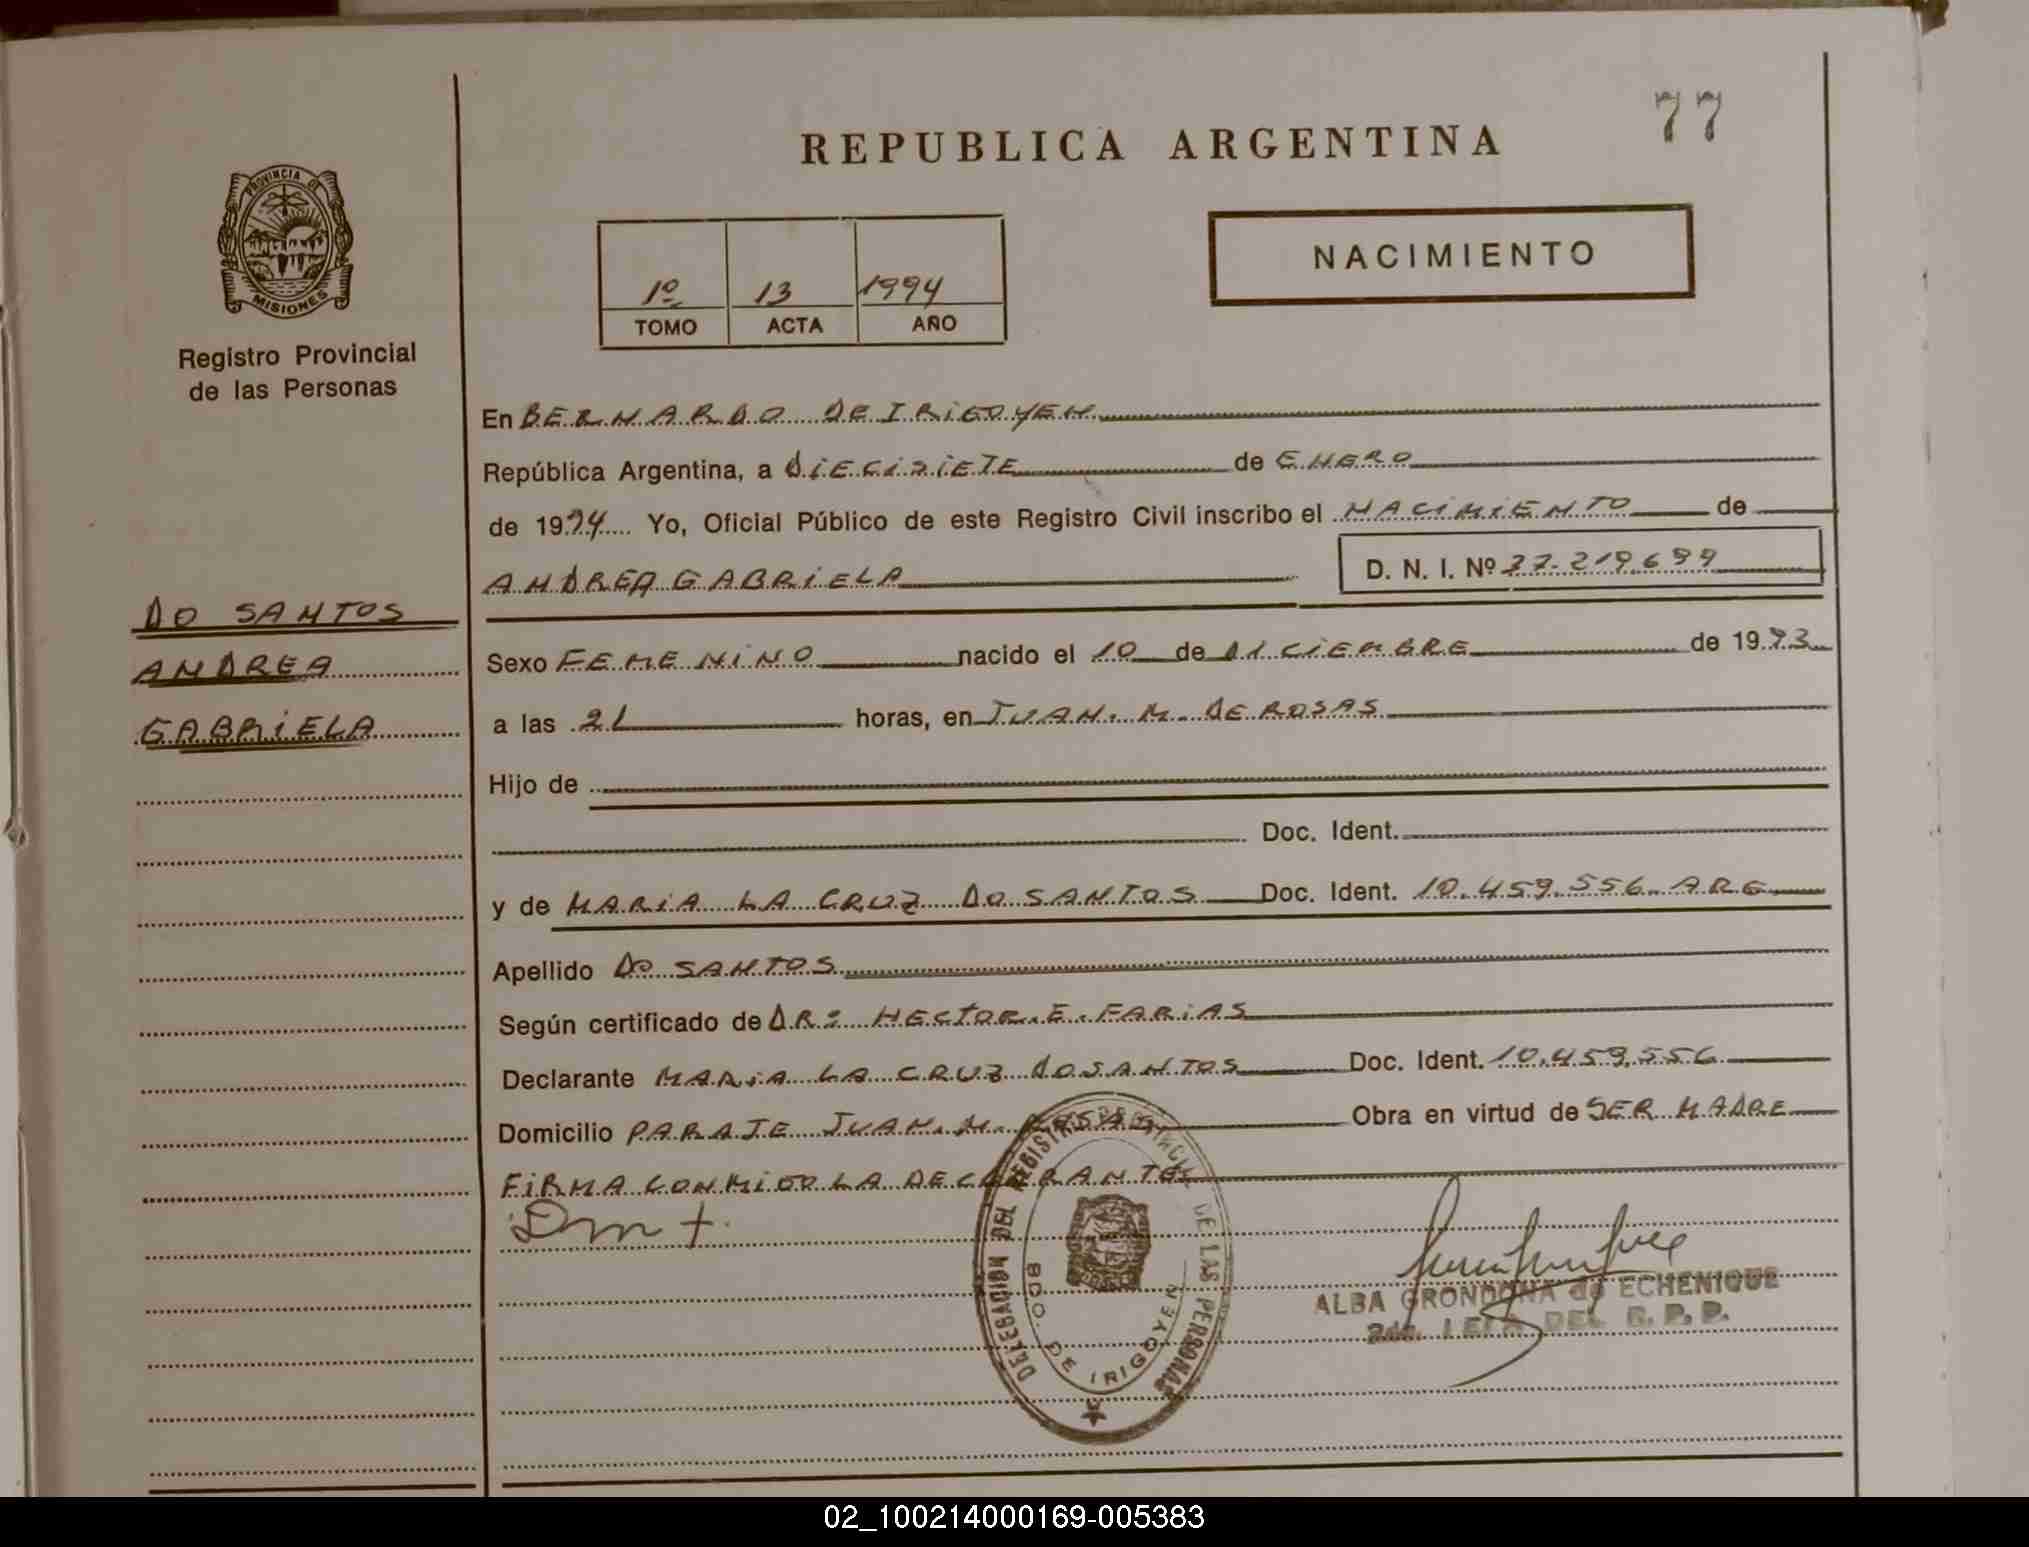 77
REPUBLICA ARGENTINA
PROVINCIA DE
MISIONES
NACIMIENTO
1º 13 1994
TOMO ACTA AÑO
Registro Provincial
de las Personas
En BERNARDO DE IRIGOYEN
República Argentina, a DIECISIETE de ENERO
de 1994 Yo, Oficial Público de este Registro Civil inscribo el NACIMIENTO de
ANDREA GABRIELA D. N. I. Nº 37.219.699
DO SANTOS
ANDREA
GABRIELA
Sexo FEMENINO nacido el 10 de DICIEMBRE de 1993
a las 21 horas, en JUAN. M. DE ROSAS
Hijo de
Doc. Ident.
y de MARIA LA CRUZ DO SANTOS Doc. Ident. 10.459.556 ARG
Apellido DO SANTOS
Según certificado de DR: HECTOR. E. FARIAS
Declarante MARIA LA CRUZ DO SANTOS Doc. Ident. 10.459.556
Domicilio PARAJE JUAN. M. ROSAS Obra en virtud de SER MADRE
FIRMA CONMIGO LA DECLARANTE
DELEGACION DEL REGISTRO PROVINCIAL DE LAS PERSONAS
BDO. DE IRIGOYEN
ALBA GRONDONA de ECHENIQUE
DEL R. P. P.
02_100214000169-005383